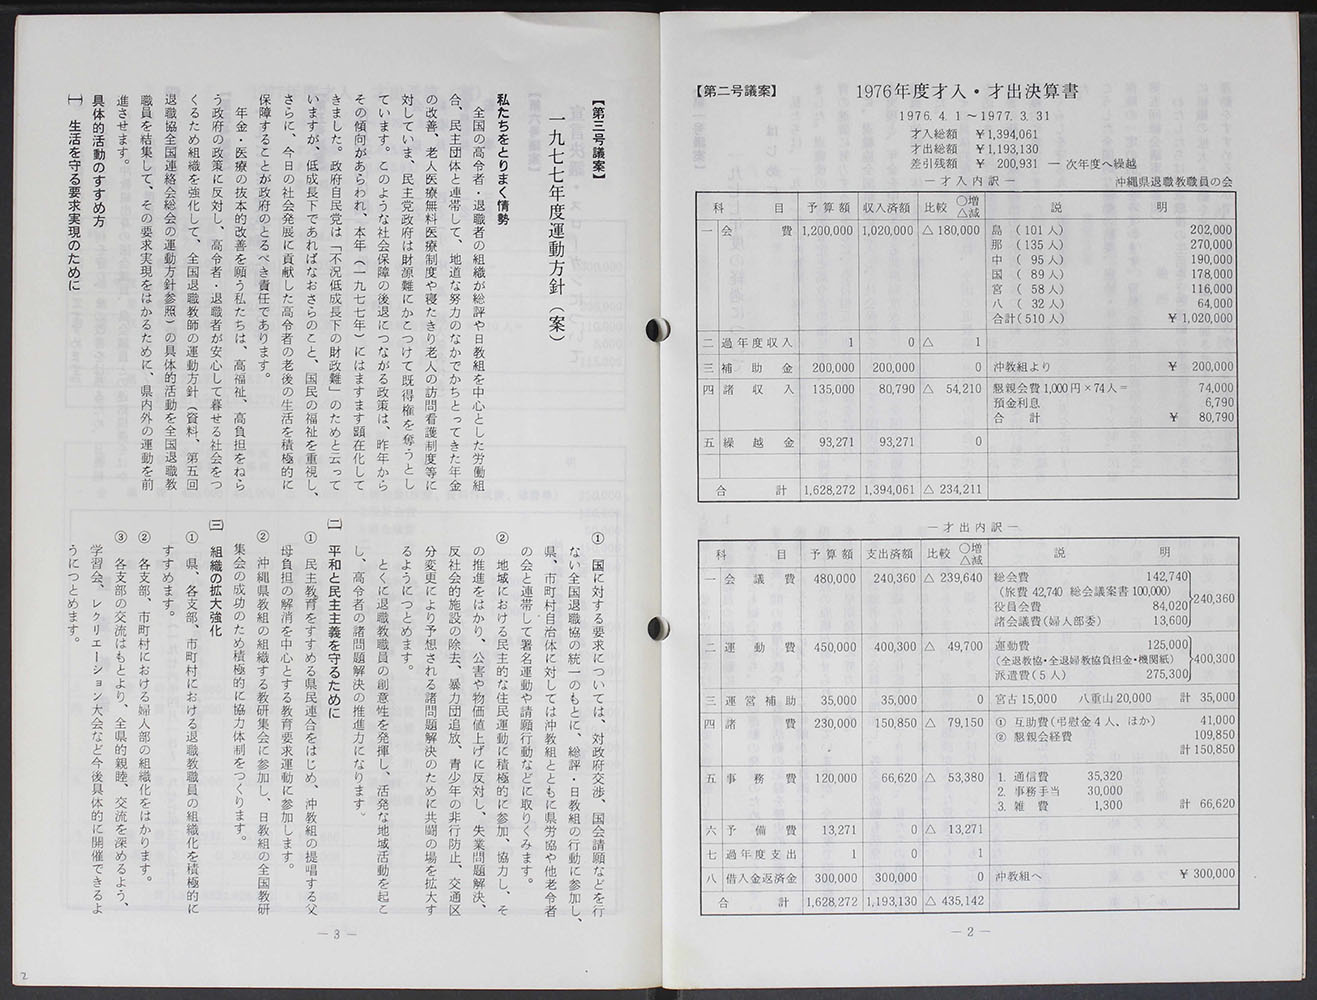 【第二号議案】
1976年度才入・才出決算書
1976. 4. 1 ～ 1977. 3. 31
才入総額 ￥1,394,061
才出総額 ￥1,193,130
差引残額 ￥ 200,931 ― 次年度へ繰越
― 才入内訳 ― 沖縄県退職教職員の会
科 目 予算額 収入済額 比較 〇増 △減 説 明
一 会 費 1,200,000 1,020,000 △ 180,000 島 （101人） 202,000
那 （135人） 270,000
中 （ 95人） 190,000
国 （ 89人） 178,000
宮 （ 58人） 116,000
八 （ 32人） 64,000
合計（510人） ￥ 1,020,000
二 過年度収入 1 0 △ 1
三 補助金 200,000 200,000 0 沖教組より ￥ 200,000
四 諸収入 135,000 80,790 △ 54,210 懇親会費1,000円×74人＝ 74,000
預金利息 6,790
合 計 ￥ 80,790
五 繰越金 93,271 93,271 0
合 計 1,628,272 1,394,061 △ 234,211
― 才出内訳 ―
科 目 予算額 支出済額 比較 〇増 △減 説 明
一 会議費 480,000 240,360 △ 239,640 総会費 142,740
（旅費 42,740 総会議案書 100,000）
役員会費 84,020
諸会議費（婦人部委） 13,600
240,360
二 運動費 450,000 400,300 △ 49,700 運動費 125,000
（全退教協・全退婦教協負担金・機関紙）
派遣費（5人） 275,300
400,300
三 運営補助 35,000 35,000 0 宮古 15,000 八重山 20,000 計 35,000
四 諸費 230,000 150,850 △ 79,150 ① 互助費（弔慰金4人、ほか） 41,000
② 懇親会経費 109,850
計 150,850
五 事務費 120,000 66,620 △ 53,380 1. 通信費 35,320
2. 事務手当 30,000
3. 雑 費 1,300 計 66,620
六 予備費 13,271 0 △ 13,271
七 過年度支出 1 0 1
八 借入金返済金 300,000 300,000 0 沖教組へ ￥ 300,000
合 計 1,628,272 1,193,130 △ 435,142
― 2 ―
【第三号議案】
一九七七年度運動方針（案）
私たちをとりまく情勢
全国の高令者・退職者の組織が総評や日教組を中心とした労働組
合、民主団体と連帯して、地道な努力のなかでかちとってきた年金
の改善、老人医療無料医療制度や寝たきり老人の訪問看護制度等に
対していま、民主党政府は財源難にかこつけて既得権を奪うとし
ています。このような社会保障の後退につながる政策は、昨年から
その傾向があらわれ、本年（一九七七年）にはますます顕在化して
きました。政府自民党は「不況低成長下の財政難」のためと云って
いますが、低成長下であればなおさらのこと、国民の福祉を重視し、
さらに、今日の社会発展に貢献した高令者の老後の生活を積極的に
保障することが政府のとるべき責任であります。
年金・医療の抜本的改善を願う私たちは、高福祉、高負担をねら
う政府の政策に反対し、高令者・退職者が安心して暮せる社会をつ
くるため組織を強化して、全国退職教師の運動方針（資料、第五回
退職協全国連絡会総会の運動方針参照）の具体的活動を全国退職教
職員を結集して、その要求実現をはかるために、県内外の運動を前
進させます。
具体的活動のすすめ方
㈠ 生活を守る要求実現のために
① 国に対する要求については、対政府交渉、国会請願などを行
ない全国退職協の統一のもとに、総評・日教組の行動に参加し、
県、市町村自治体に対しては沖教組とともに県労協や他老令者
の会と連帯して署名運動や請願行動などに取りくみます。
② 地域における民主的な住民運動に積極的に参加、協力し、そ
の推進をはかり、公害や物価値上げに反対し、失業問題解決、
反社会的施設の除去、暴力団追放、青少年の非行防止、交通区
分変更により予想される諸問題解決のために共闘の場を拡大す
るようにつとめます。
とくに退職教職員の創意性を発揮し、活発な地域活動を起こ
し、高令者の諸問題解決の推進力になります。
㈡ 平和と民主主義を守るために
① 民主教育をすすめる県民連合をはじめ、沖教組の提唱する父
母負担の解消を中心とする教育要求運動に参加します。
② 沖縄県教組の組織する教研集会に参加し、日教組の全国教研
集会の成功のため積極的に協力体制をつくります。
㈢ 組織の拡大強化
① 県、各支部、市町村における退職教職員の組織化を積極的に
すすめます。
② 各支部、市町村における婦人部の組織化をはかります。
③ 各支部の交流はもとより、全県的親睦、交流を深めるよう、
学習会、レクリエーション大会など今後具体的に開催できるよ
うにつとめます。
― 3 ―
2